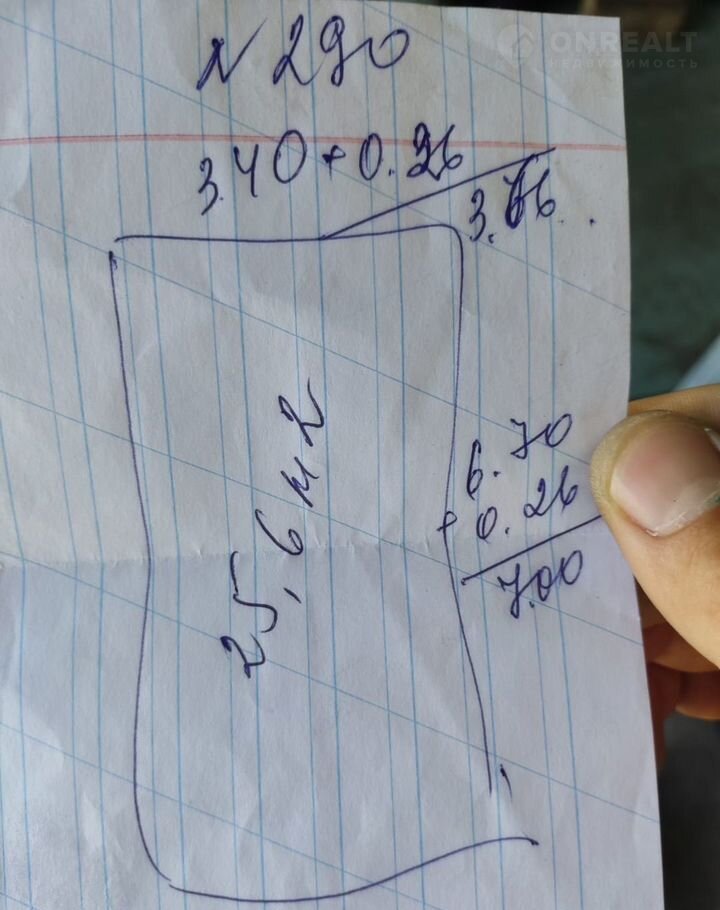 ONREALT
НЕДВИЖИМОСТЬ
N 290
3.40 + 0.26
3.66
6.70
+ 0.26
7.00
25,6 м2